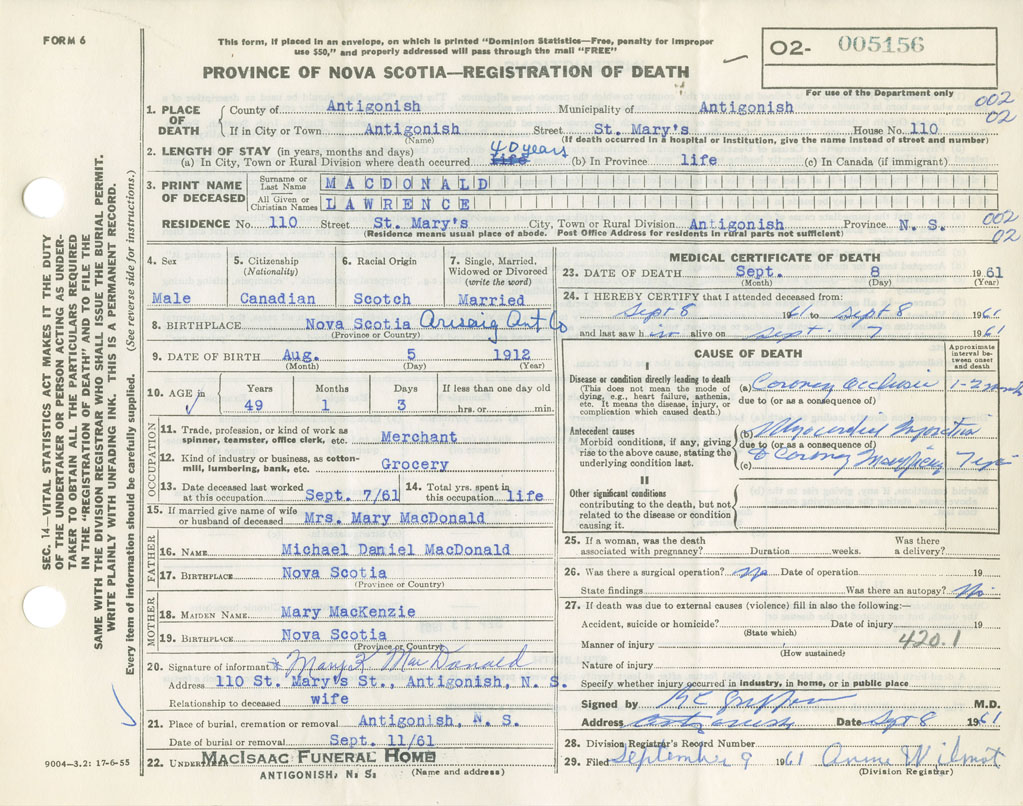 FORM 6
This form, if placed in an envelope, on which is printed "Dominion Statistics—Free, penalty for improper
use $50," and properly addressed will pass through the mail "FREE"
PROVINCE OF NOVA SCOTIA—REGISTRATION OF DEATH
02- 005156
For use of the Department only
002
02
1. PLACE OF DEATH County of Antigonish Municipality of Antigonish
If in City or Town Antigonish Street St. Mary's House No. 110
(Name) (If death occurred in a hospital or institution, give the name instead of street and number)
2. LENGTH OF STAY (in years, months and days)
(a) In City, Town or Rural Division where death occurred 40 years life (b) In Province life (c) In Canada (if immigrant)
3. PRINT NAME OF DECEASED Surname or Last Name MACDONALD
All Given or Christian Names LAWRENCE
RESIDENCE No. 110 Street St. Mary's City, Town or Rural Division Antigonish Province N. S.
(Residence means usual place of abode. Post Office Address for residents in rural parts not sufficient)
002
02
4. Sex Male
5. Citizenship (Nationality) Canadian
6. Racial Origin Scotch
7. Single, Married, Widowed or Divorced (write the word) Married
8. BIRTHPLACE Nova Scotia Arisaig Ant Co
(Province or Country)
9. DATE OF BIRTH Aug. 5 1912
(Month) (Day) (Year)
10. AGE in Years 49 Months 1 Days 3 If less than one day old hrs. or min.
OCCUPATION
11. Trade, profession, or kind of work as spinner, teamster, office clerk, etc. Merchant
12. Kind of industry or business, as cotton-mill, lumbering, bank, etc. Grocery
13. Date deceased last worked at this occupation Sept. 7/61 14. Total yrs. spent in this occupation life
15. If married give name of wife or husband of deceased Mrs. Mary MacDonald
FATHER
16. NAME Michael Daniel MacDonald
17. BIRTHPLACE Nova Scotia
(Province or Country)
MOTHER
18. MAIDEN NAME Mary MacKenzie
19. BIRTHPLACE Nova Scotia
(Province or Country)
20. Signature of informant Mary K MacDonald
Address 110 St. Mary's St., Antigonish, N. S.
Relationship to deceased wife
21. Place of burial, cremation or removal Antigonish, N. S.
Date of burial or removal Sept. 11/61
22. UNDERTAKER MACISAAC FUNERAL HOME
ANTIGONISH, N. S. (Name and address)
MEDICAL CERTIFICATE OF DEATH
23. DATE OF DEATH Sept. 8 1961
(Month) (Day) (Year)
24. I HEREBY CERTIFY that I attended deceased from:
Sept 8 1961 to Sept 8 1961
and last saw him alive on Sept. 7 1961
CAUSE OF DEATH
Approximate interval between onset and death
I
Disease or condition directly leading to death (a) Coronary Occlusion
(This does not mean the mode of dying, e.g., heart failure, asthenia, etc. It means the disease, injury, or complication which caused death.)
due to (or as a consequence of)
Antecedent causes (b) Myocardial Infarction
Morbid conditions, if any, giving rise to the above cause, stating the underlying condition last.
due to (or as a consequence of)
(c) Coronary Insufficiency
II
Other significant conditions
contributing to the death, but not related to the disease or condition causing it.
25. If a woman, was the death associated with pregnancy? Duration weeks. Was there a delivery?
26. Was there a surgical operation? No Date of operation 19
State findings Was there an autopsy? No
27. If death was due to external causes (violence) fill in also the following:—
Accident, suicide or homicide? Date of injury 19
(State which)
Manner of injury 420.1
(How sustained)
Nature of injury
Specify whether injury occurred in industry, in home, or in public place
Signed by M.D.
Address Antigonish Date Sept 8 1961
28. Division Registrar's Record Number
29. Filed September 9 1961 Anna Wilmot
(Division Registrar)
SEC. 14—VITAL STATISTICS ACT MAKES IT THE DUTY
OF THE UNDERTAKER OR PERSON ACTING AS UNDER-
TAKER TO OBTAIN ALL THE PARTICULARS REQUIRED
IN THE "REGISTRATION OF DEATH" AND TO FILE THE
SAME WITH THE DIVISION REGISTRAR WHO SHALL ISSUE THE BURIAL PERMIT.
WRITE PLAINLY WITH UNFADING INK. THIS IS A PERMANENT RECORD.
Every item of information should be carefully supplied. (See reverse side for instructions.)
9004—3.2: 17-6-55